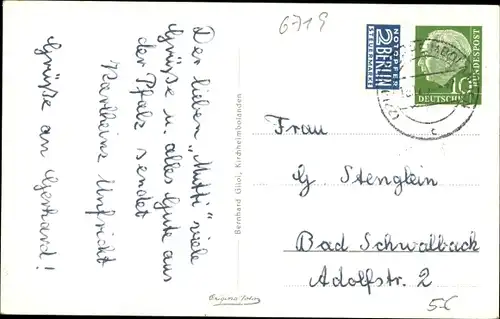 6719
Der lieben „Mutti" viele
Grüße u. alles Gute aus
der Pfalz sendet
Karlheinz Unfricht
Grüße an Gerhard!
Bernhard Gilloi, Kirchheimbolanden
NOTOPFER
2 BERLIN
STEUERMARKE
10
DEUTSCHE
BUNDESPOST
(22
c
Frau
G. Stenglein
Bad Schwalbach
Adolfstr. 2
5C